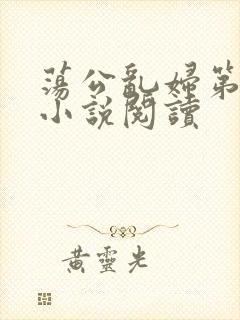 蕩公亂婦第
小說閱讀
黃靈光